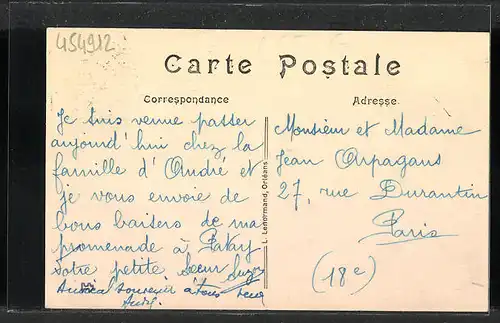 454912
Carte Postale
Correspondance
Adresse
Je suis venue passer
aujourd'hui chez la
famille d'André et
je vous envoie de
bons baisers de ma
promenade à Patay
votre petite Soeur Suzy
Amical souvenir à tous
André
L. Lenormand, Orléans
Monsieur et Madame
Jean Arpagaus
27, rue Durantin
Paris
(18e)